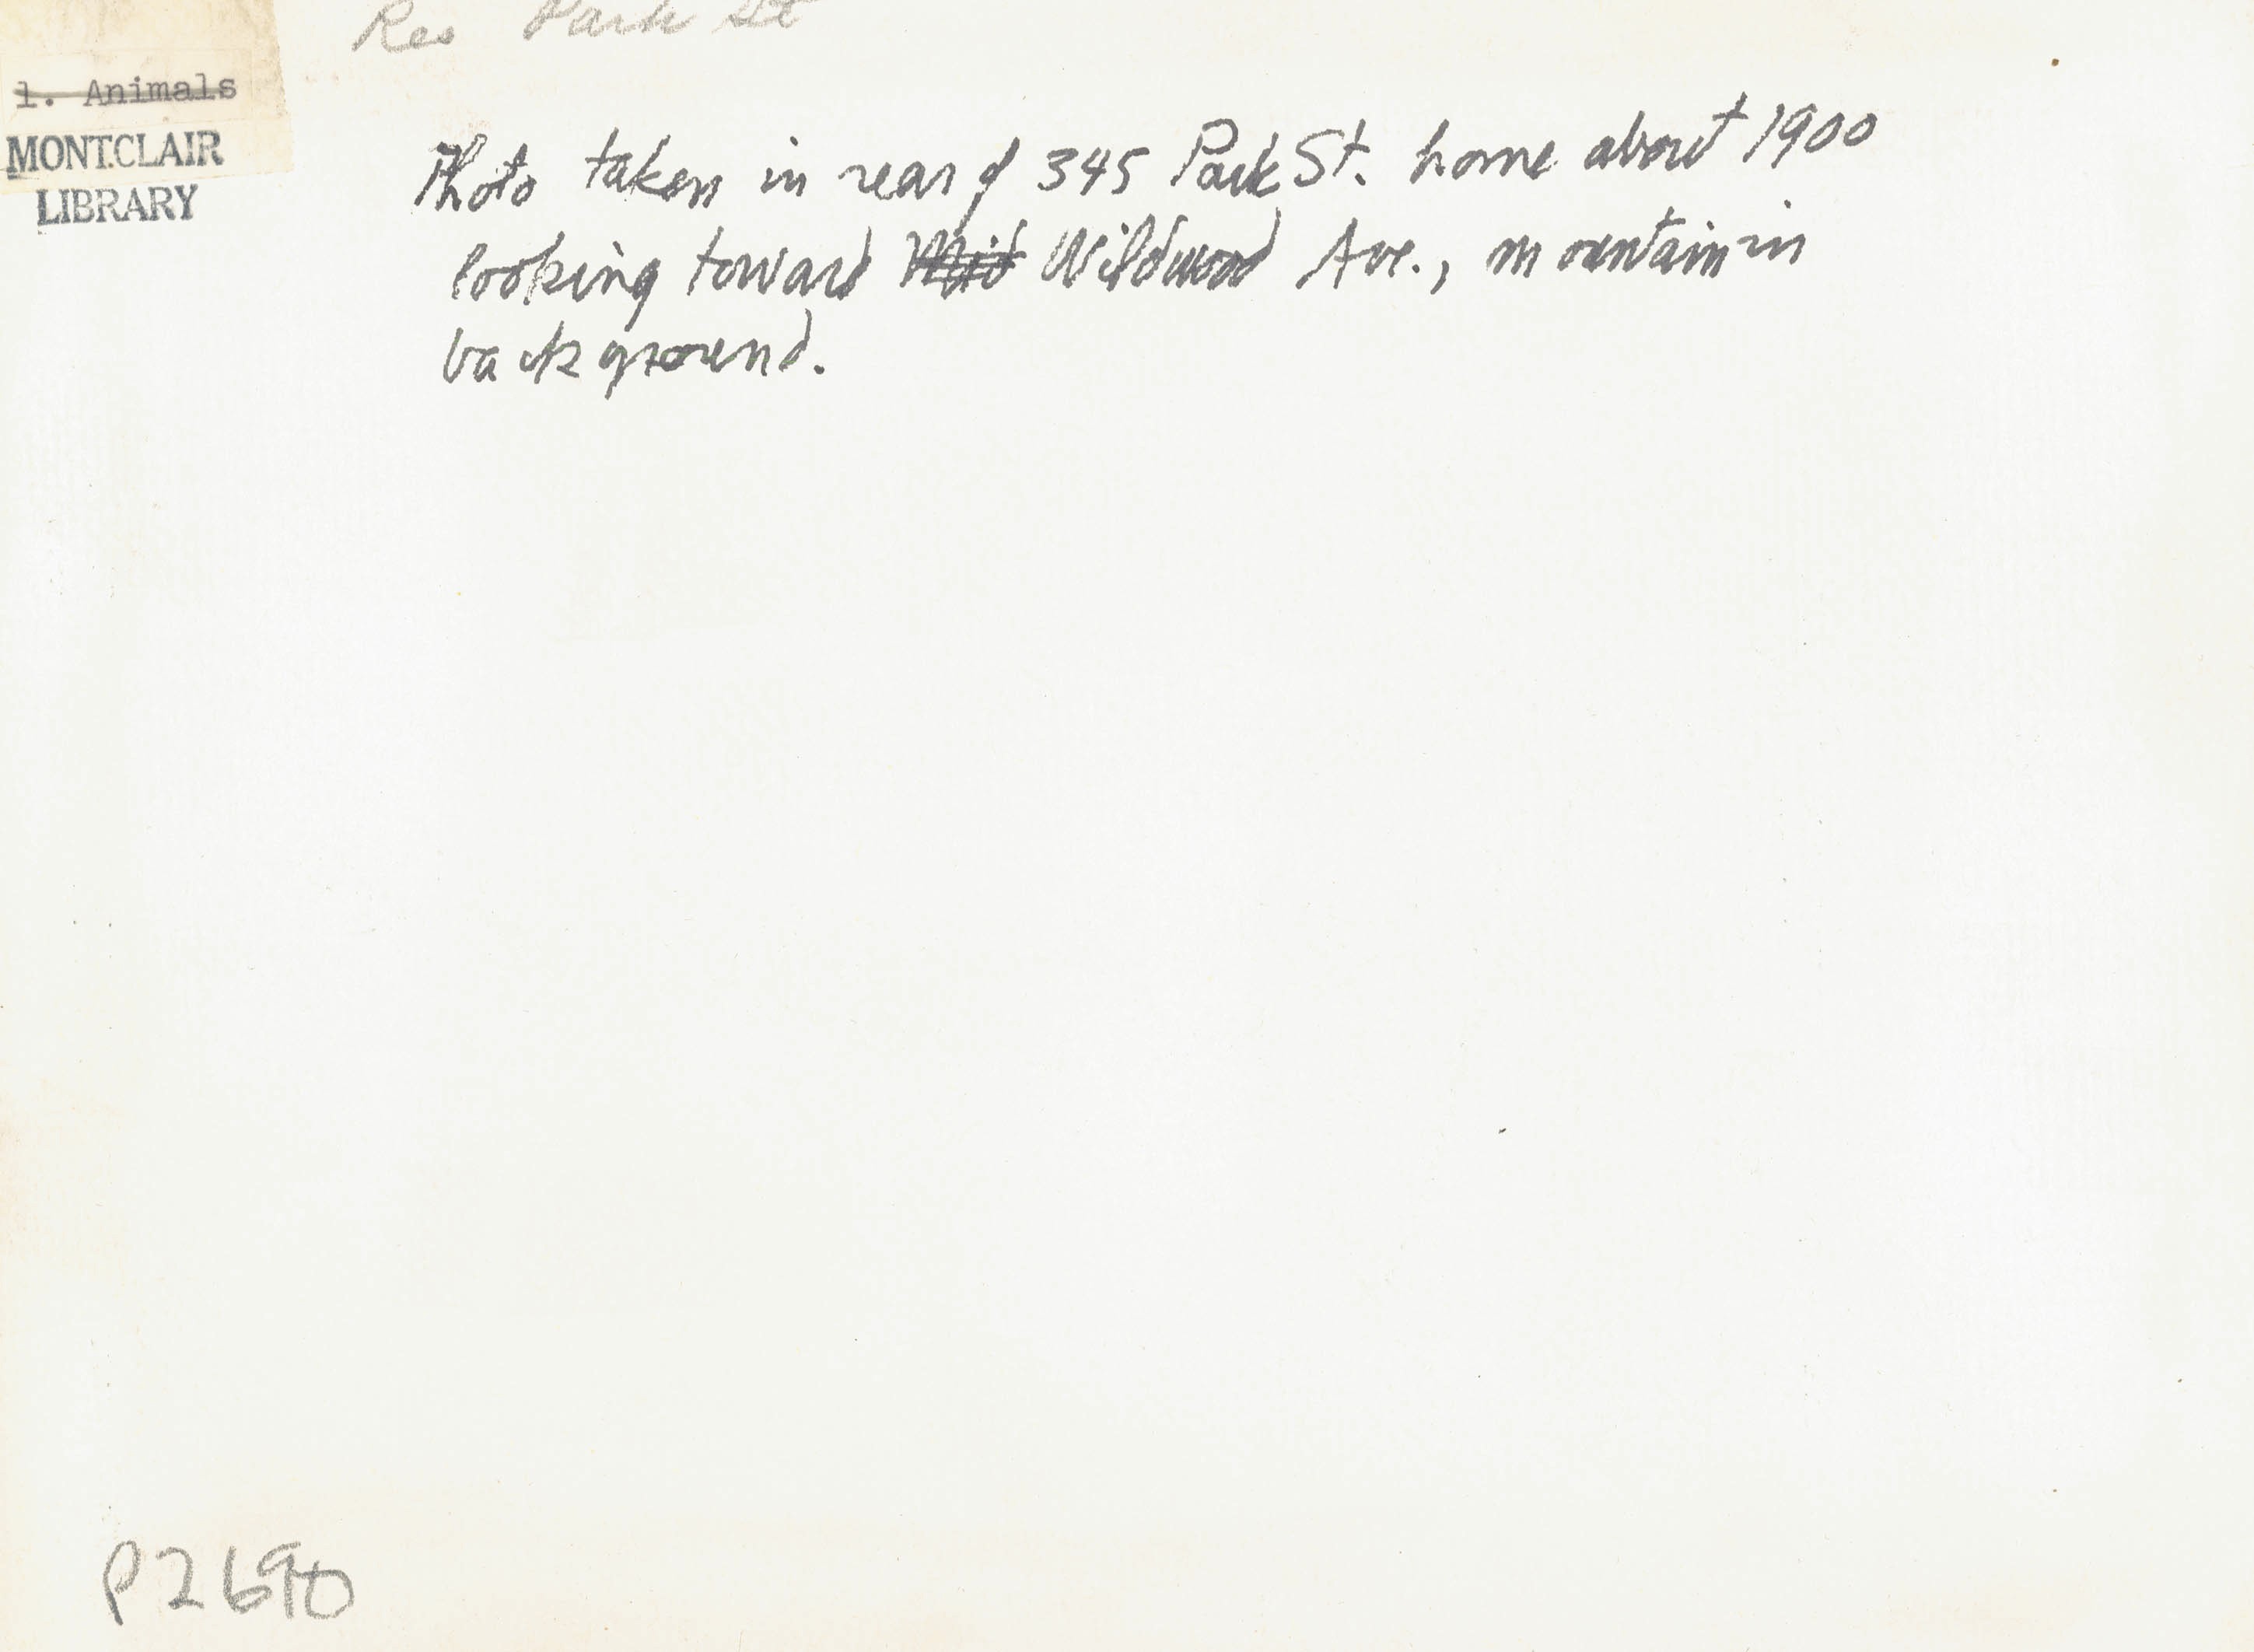 Res Park St
1. Animals
MONTCLAIR
LIBRARY
Photo taken in rear of 345 Park St. home about 1900
looking toward Wildwood Ave., mountain in
background.
P2690